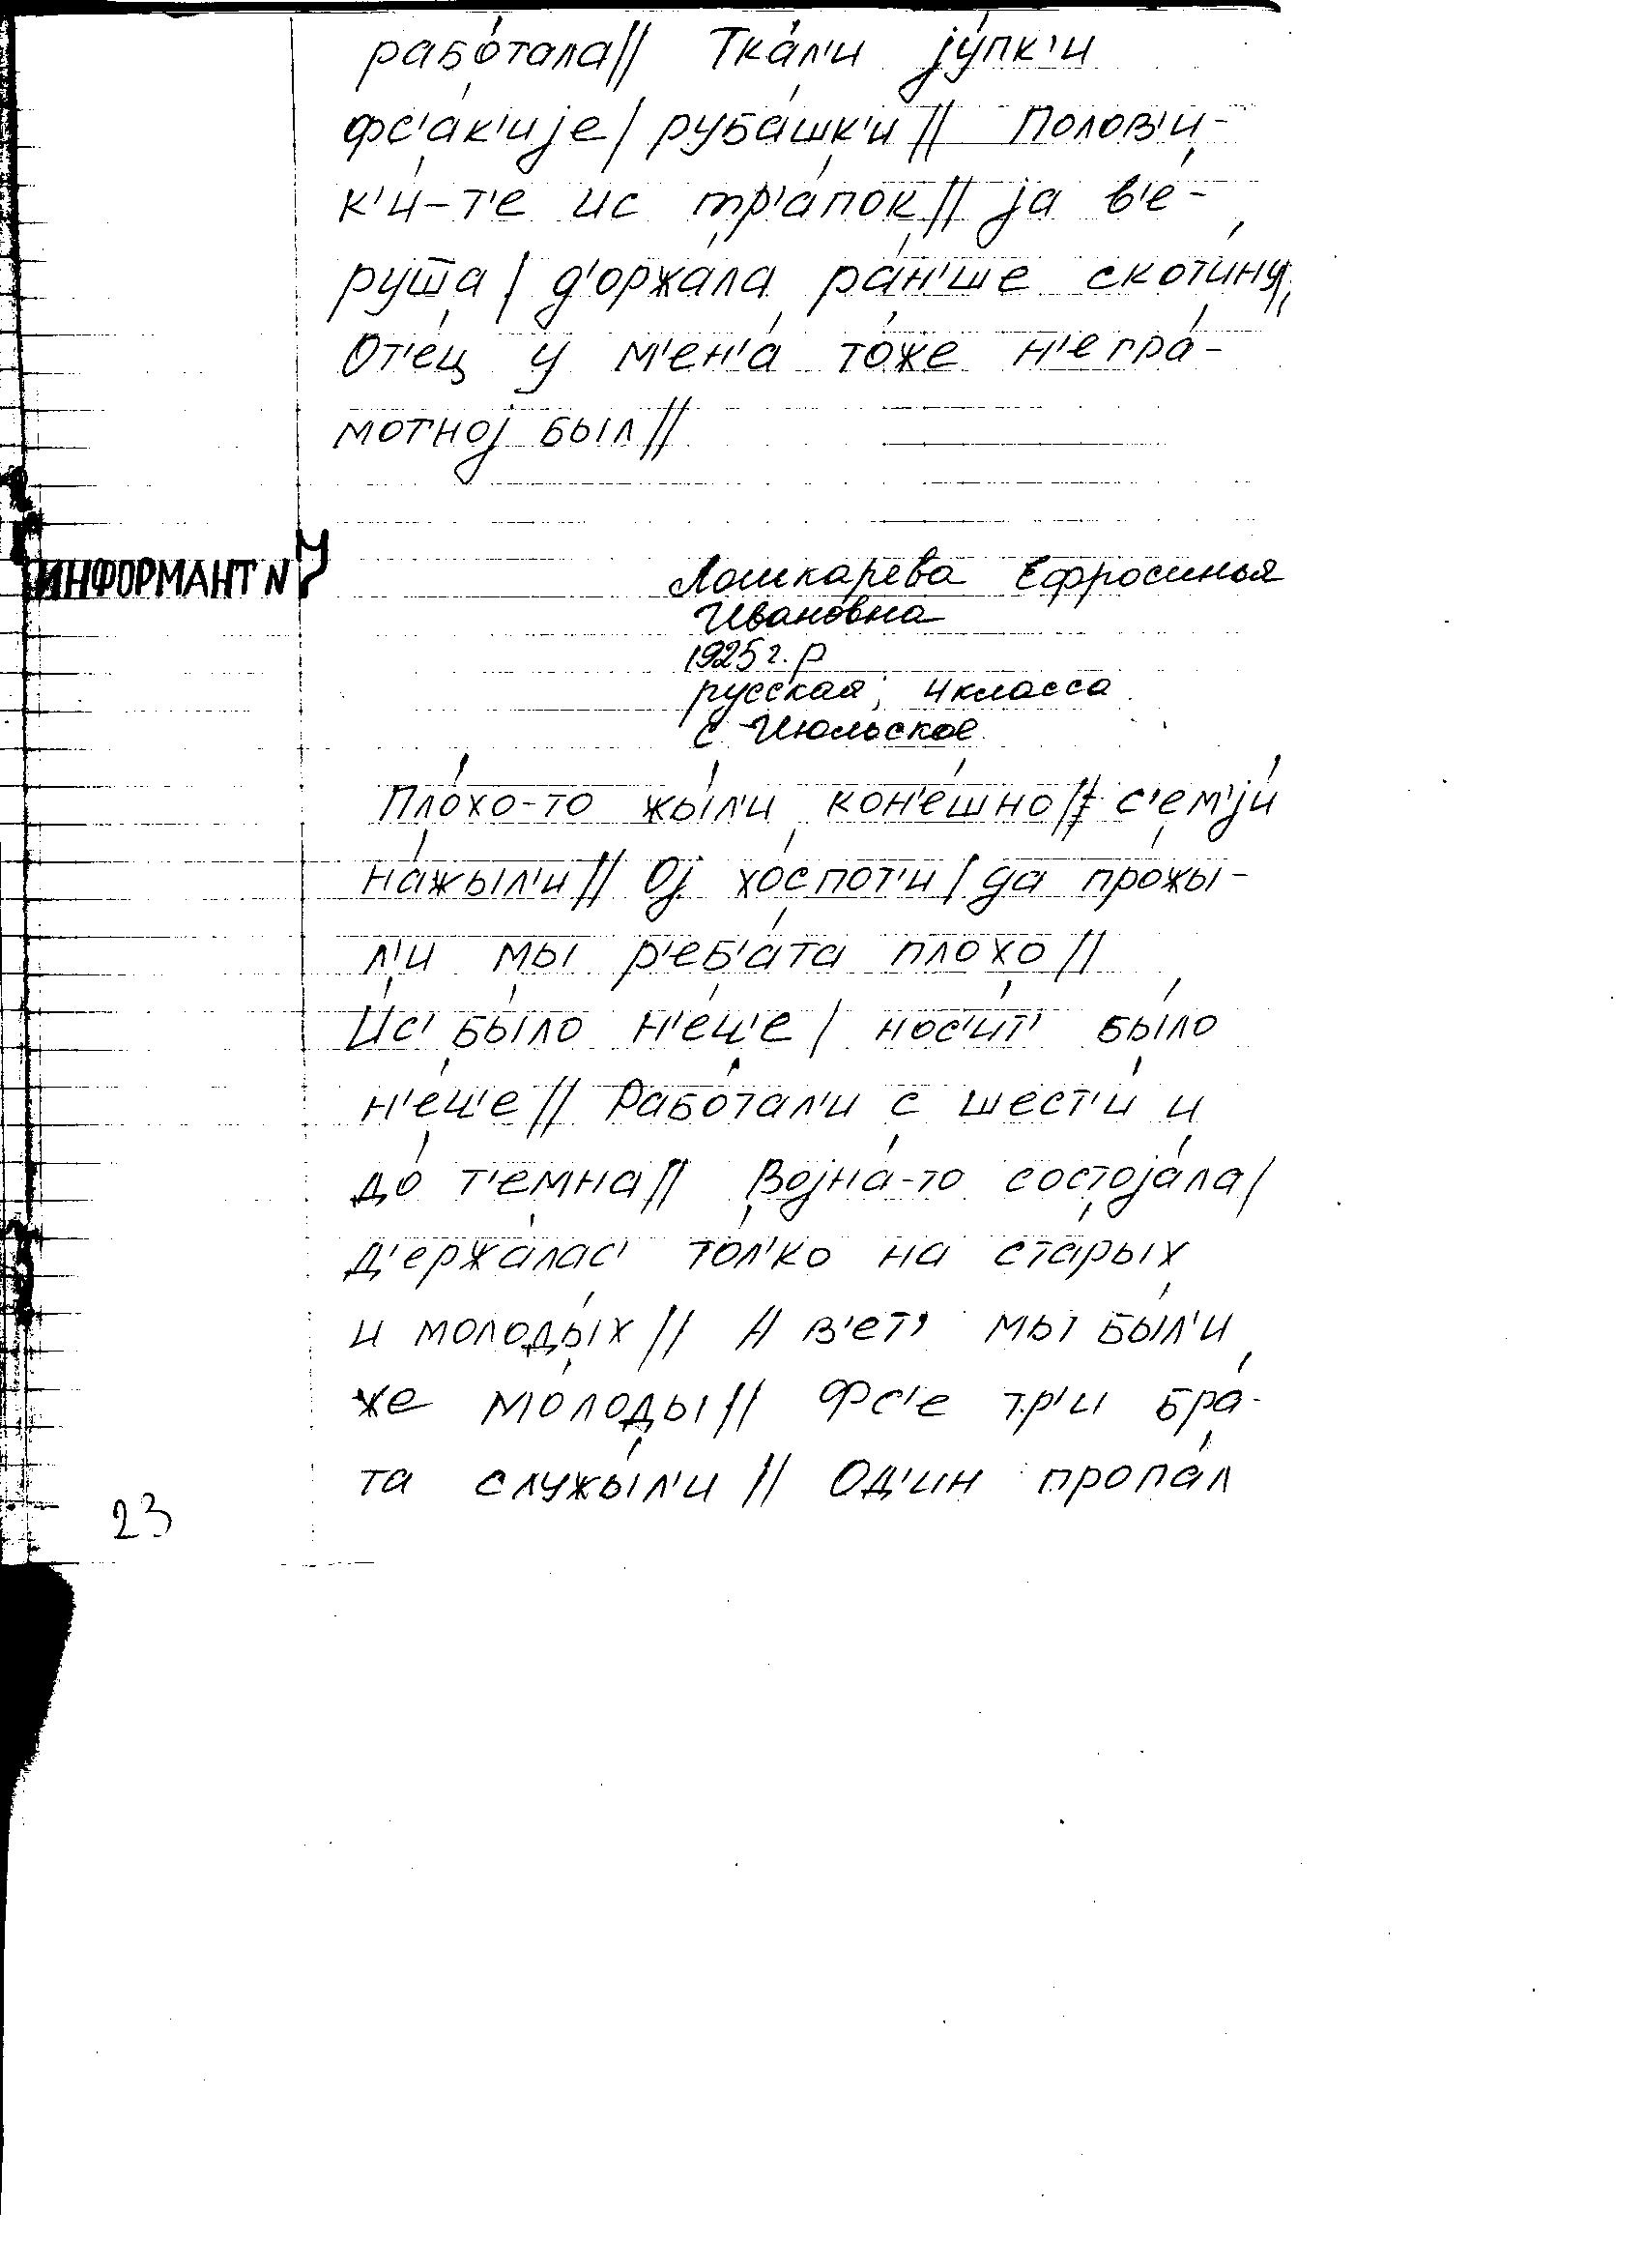 рабо́тала// Тка́л'и jу́пк'и
фс'а́к'иjе/ руба́шк'и// Полов'и-
к'и́-т'е ис тр'а́пок// jа в'е́-
руша/ д'оржа́ла ра́н'ше скоти́ну//
От'е́ц у м'ен'а́ то́же н'егра́-
мотноj был//
ИНФОРМАНТ № 7
Лошкарева Ефросинья
Ивановна
1925 г. р
русская, 4 класса
с Июльское
Пло́хо-то жы́л'и кон'е́шно// с'ем'jи́
на́жыл'и// Оj хо́спот'и/ да про́жы-
л'и мы р'еб'а́та плохо//
И́с' бы́ло н'е́ш'е/ нос'и́т' бы́ло
н'е́ш'е// Рабо́тал'и с шест'и́ и
до́ т'емна// Воjна́-то состоjа́ла/
д'ержа́лас' то́л'ко на ста́рых
и молоды́х// А в'ет' мы бы́л'и
же мо́лоды// Фс'е тр'и бра́-
та служы́л'и// Од'ин пропа́л
23